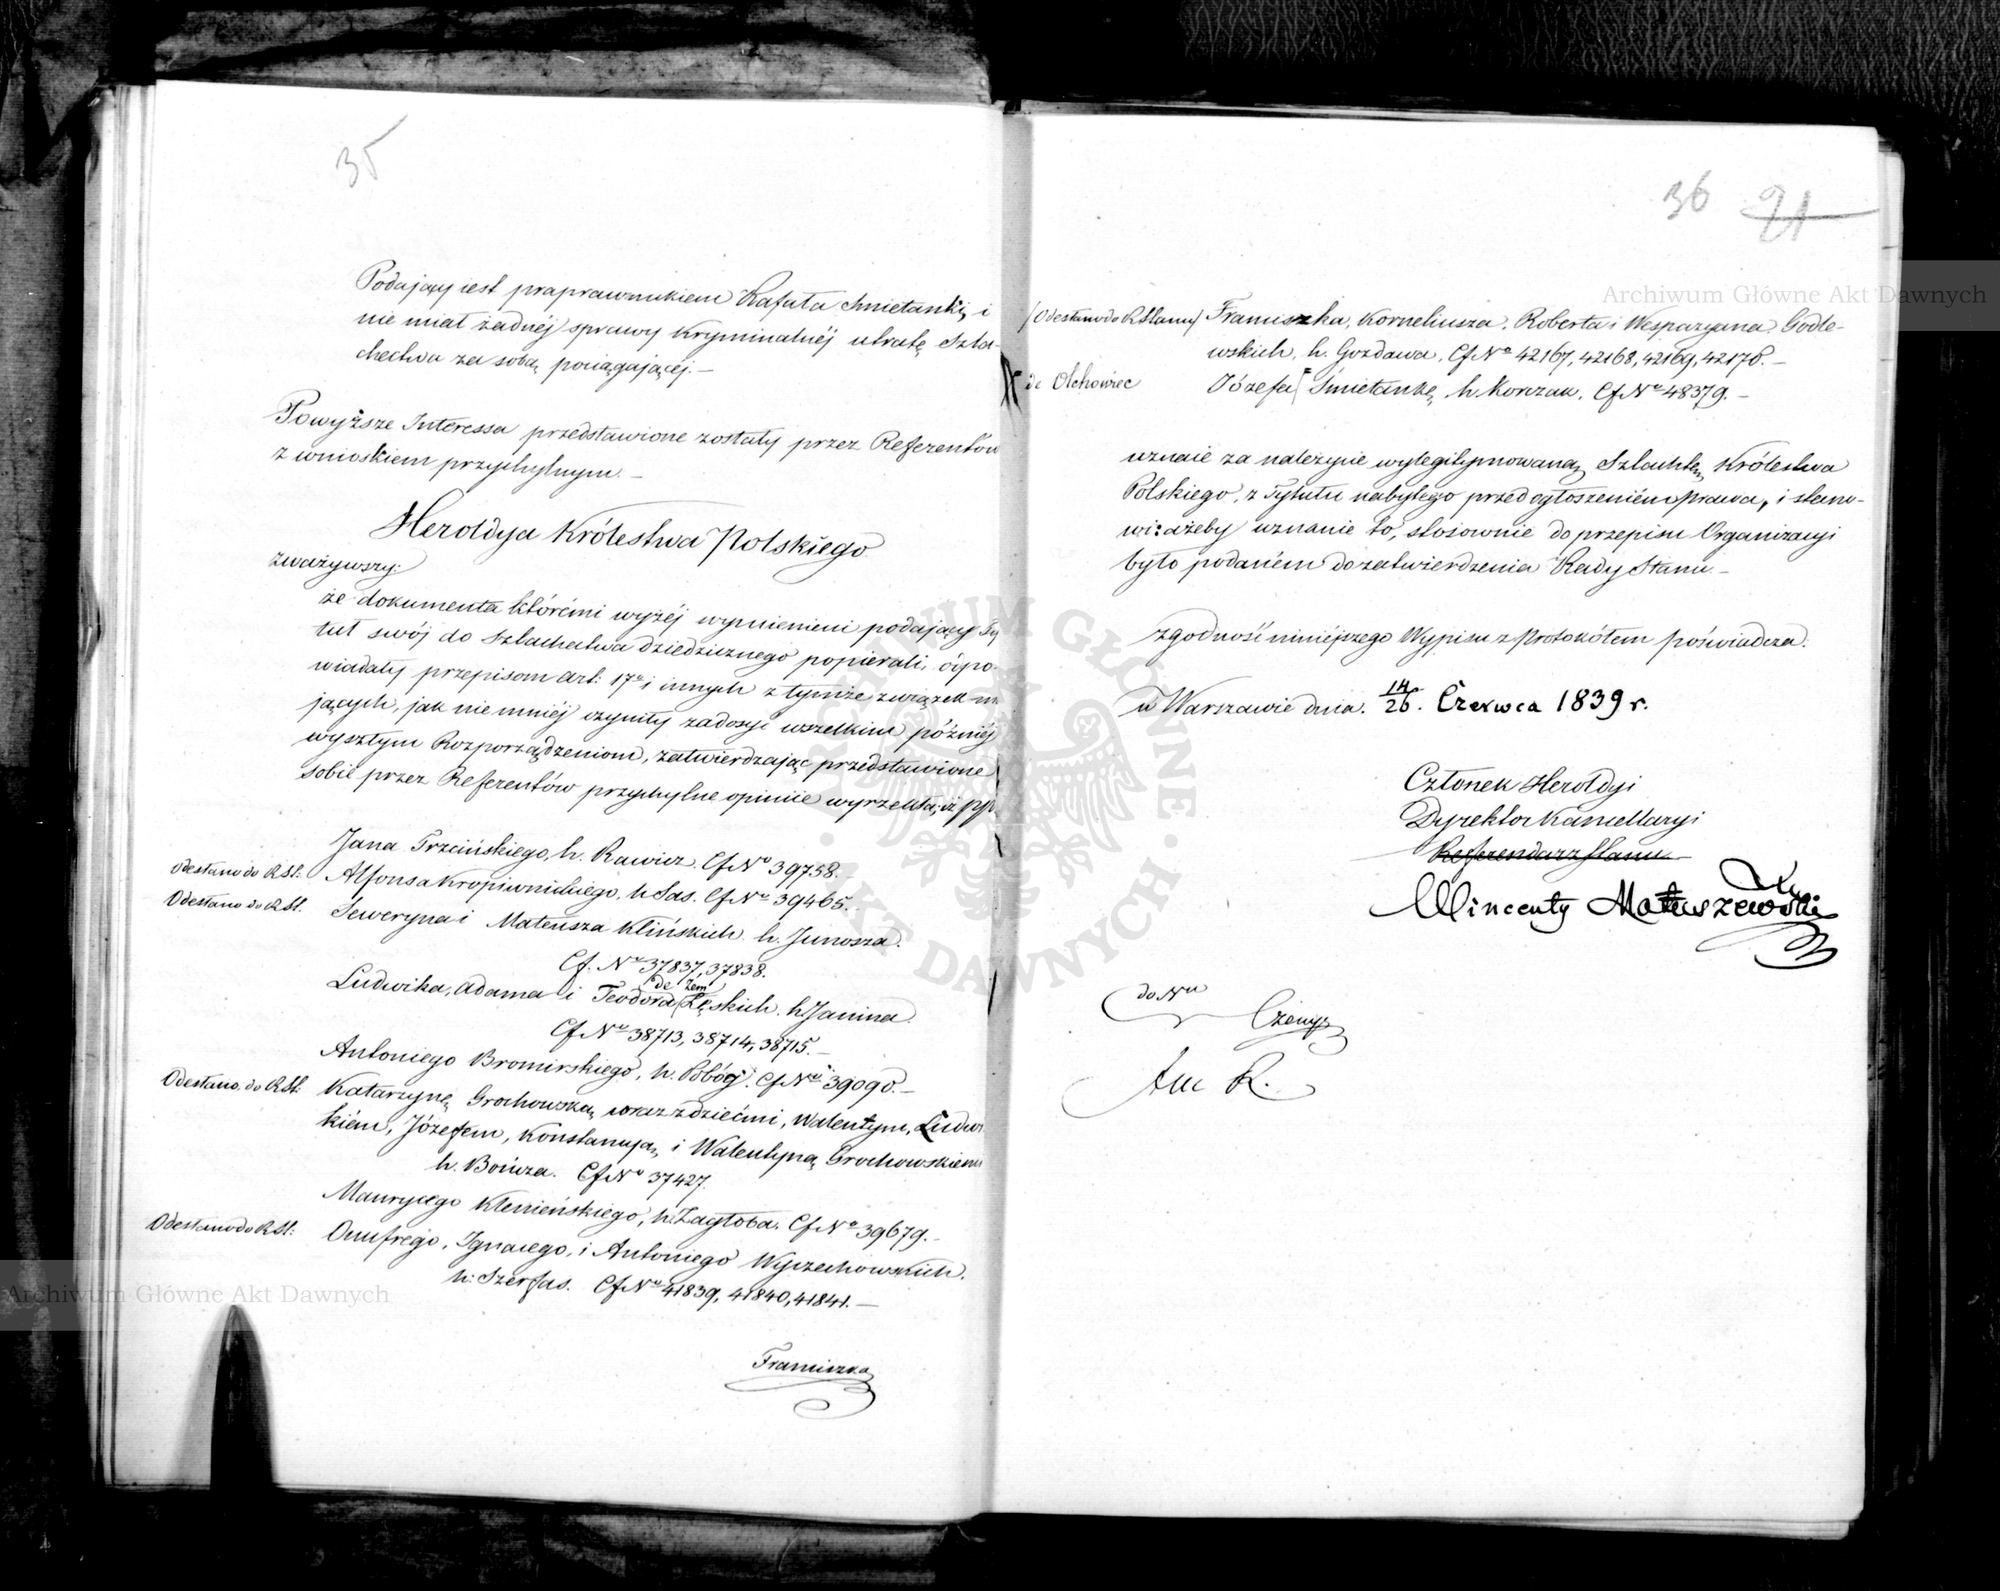 35
Podający jest praprawnukiem Rafała Śmietanki, i
nie miał żadnéj sprawy Kryminalnéj utratę Szla-
chectwa za sobą pociągającéj. —
Powyższe Interessa przedstawione zostały przez Referentów
z wnioskiem przychylnym. —
Heroldya Królestwa Polskiego
zważywszy:
że dokumenta któremi wyżéj wymienieni podający Ty
tuł swój do Szlachectwa dziedzicznego popierali, odpo-
wiadały przepisom Art: 17º i innych z tymże związek m
jących, jak nie mniéj czyniły zadosyć wszelkim późniéj
wyszłym Rozporządzeniom, zatwierdzając przedstawione
sobie przez Referentów przychylne opinije wyrzekła, iż pp
Jana Trzcińskiego, h. Rawicz. Cf Nº 39758. —
Odesłano do R.St: Alfonsa Kropiwnickiego, h. Sas. Cf Nº 39465. —
Odesłano do R.St. Seweryna i Mateusza Klińskich h. Junosza.
Cf. Nº 37837, 37838.
de Zem
Ludwika, Adama i Teodora Łęskich h. Janina.
Cf Nº 38713, 38714, 38715. —
Antoniego Bromirskiego, h. Pobóg. Cf Nº 39090. —
Odesłano do R.St: Katarzynę Grochowską wraz z dziećmi, Walentym, Ludwi
kiém, Józefem, Konstancyą, i Walentyną Grochowskiemi
h. Bończa. Cf Nº 37427.
Maurycego Klenieńskiego, h. Zagłoba. Cf Nº 39679. —
Odesłano do R.St: Onufrego, Ignacego, i Antoniego Wyrzechowskich.
h: Szerfas. Cf Nº 41839, 41840, 41841. —
Franciszka
36 21
(Odesłano do R.Stanu) Franciszka, Korneliusza, Roberta i Wespazyana Godle-
wskich, h. Gozdawa, Cf Nº 42167, 42168, 42169, 42170. —
de Olchowiec Józefa Śmietankę, h. Korczak. Cf Nº 48379. —
uznaie za należycie wylegitymowaną Szlachtę Królestwa
Polskiego, z Tytułu nabytego przed ogłoszeniem prawa, i stano-
wi: ażeby uznanie to, stosownie do przepisu Organizacyi
było podaném do zatwierdzenia Rady Stanu. —
Zgodność niniejszego Wypisu z Protokółem poświadcza.
w Warszawie dnia. 14/26. Czerwca 1839 r.
Członek Heroldyi
Dyrektor Kancellaryi
Referendarz Stanu
Wincenty Matuszewski
do Nru
Am R.
Archiwum Główne Akt Dawnych
Archiwum Główne Akt Dawnych
ARCHIWUM GŁÓWNE · AKT DAWNYCH ·